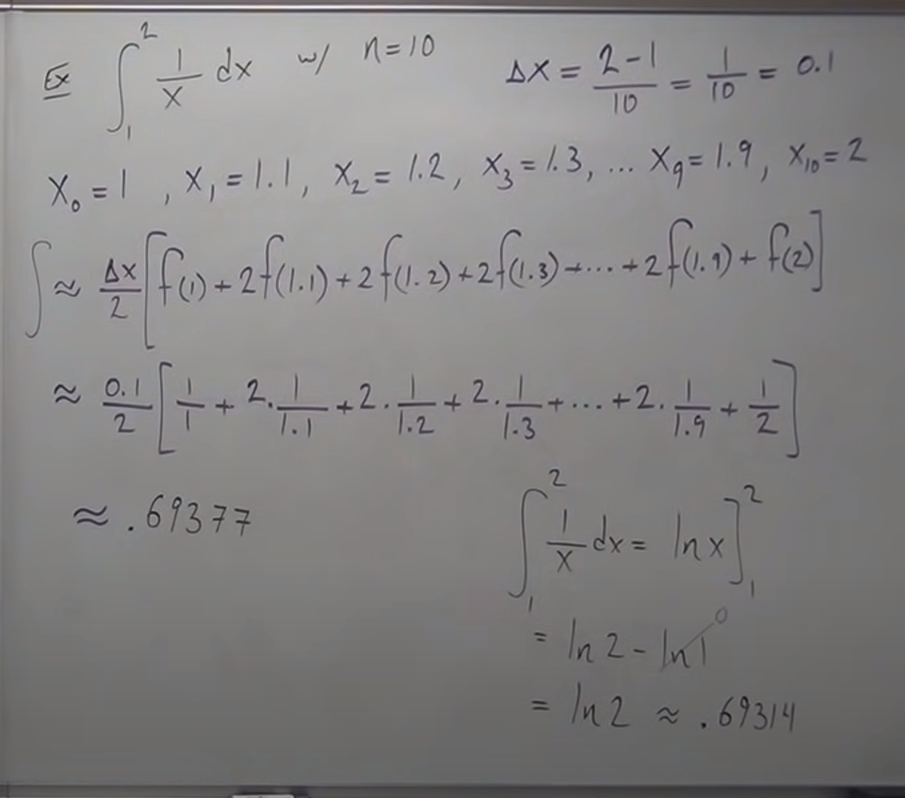 Ex ∫₁² 1/x dx w/ n=10 Δx = (2-1)/10 = 1/10 = 0.1
x₀ = 1, x₁ = 1.1, x₂ = 1.2, x₃ = 1.3, ... x₉ = 1.9, x₁₀ = 2
∫ ≈ Δx/2 [f(1) + 2f(1.1) + 2f(1.2) + 2f(1.3) + ... + 2f(1.9) + f(2)]
≈ 0.1/2 [1/1 + 2·1/1.1 + 2·1/1.2 + 2·1/1.3 + ... + 2·1/1.9 + 1/2]
≈ .69377
∫₁² 1/x dx = ln x]₁²
= ln 2 - ln 1 0
= ln 2 ≈ .69314